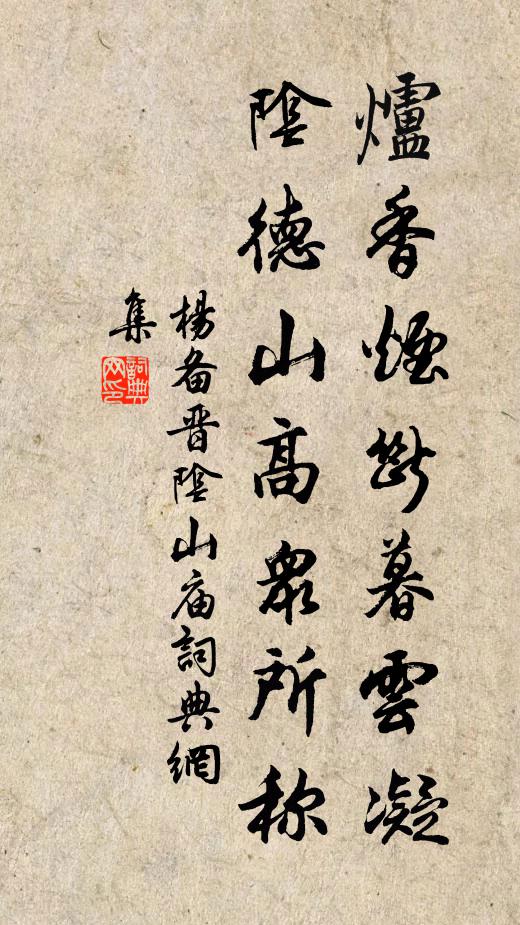 爐香煙斷暮雲凝
陰德山高眾所称
楊备晋陰山庙詞典網
集
詞典网印